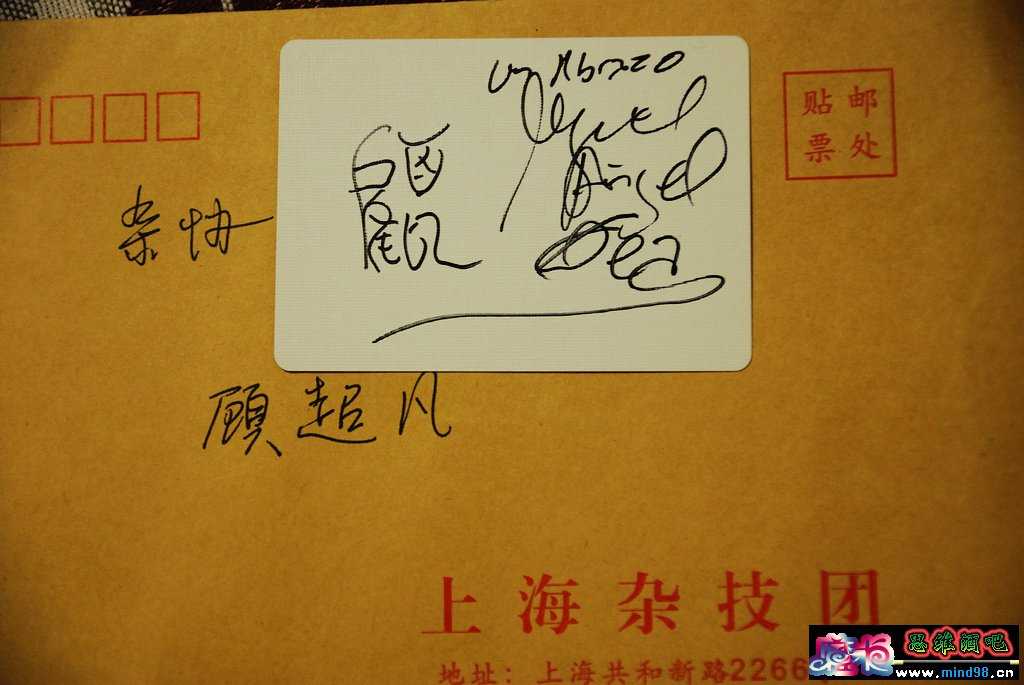 Un Abrazo
Miguel
Angel
Gea
贴邮
票处
杂协
顾超凡
上海杂技团
地址：上海共和新路2266
思维酒吧
www.mind98.cn